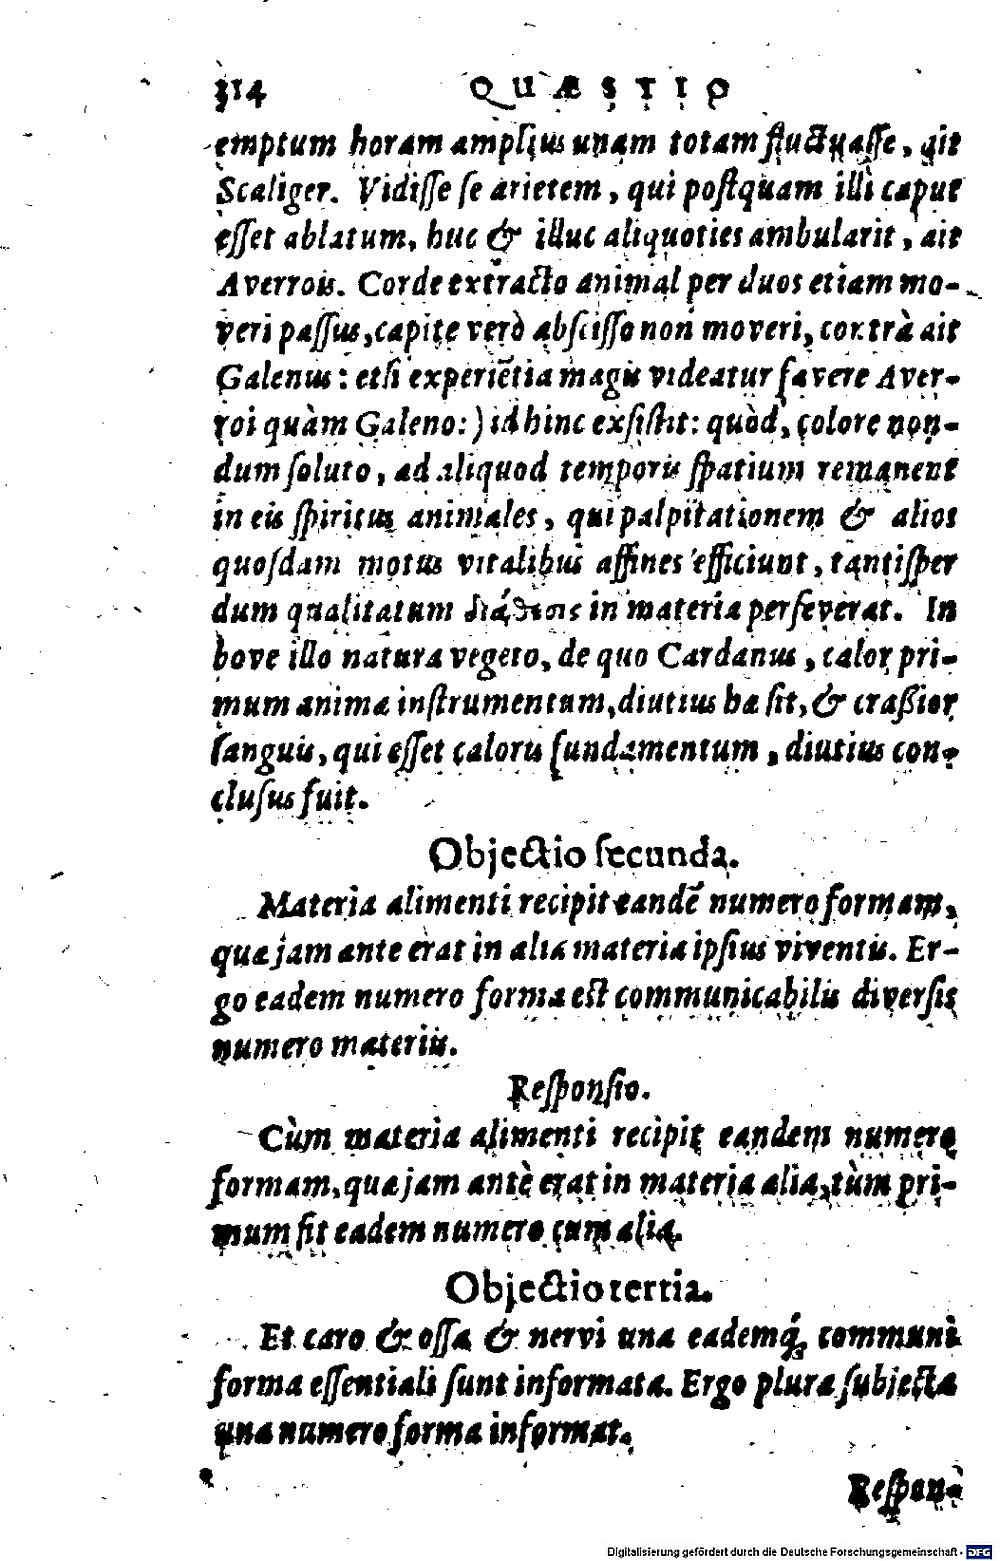 314 QUÆSTIO
emptum horam amplius unam totam fluctuasse, ait
Scaliger. Vidisse se arietem, qui postquam illi caput
esset ablatum, huc & illuc aliquoties ambularit, ait
Averrois. Corde extracto animal per duos etiam mo-
veri passus, capite verò abscisso non moveri, contrà ait
Galenus: etsi experiẽtia magis videatur favere Aver-
roi quàm Galeno:) id hinc exsistit: quòd, colore non-
dum soluto, ad aliquod temporis spatium remanent
in eis spiritus animales, qui palpitationem & alios
quosdam motus vitalibus affines efficiunt, tantisper
dum qualitatum διάθεσις in materia perseverat. In
bove illo natura vegeto, de quo Cardanus, calor pri-
mum anima instrumentum, diutius hæsit, & crassior
sanguis, qui esset caloris fundamentum, diutius con-
clusus fuit.
Objectio secunda.
Materia alimenti recipit eandẽ numero formam,
quæ jam ante erat in alia materia ipsius viventis. Er-
go eadem numero forma est communicabilis diversis
numero materiis.
Responsio.
Cùm materia alimenti recipit eandem numero
formam, quæ jam antè erat in materia alia, tùm pri-
mum fit eadem numero cum alia.
Objectio tertia.
Et caro & ossa & nervi una eademq́; communi
forma essentiali sunt informata. Ergo plura subjecta
una numero forma informat.
Respon-
Digitalisierung gefördert durch die Deutsche Forschungsgemeinschaft - DFG